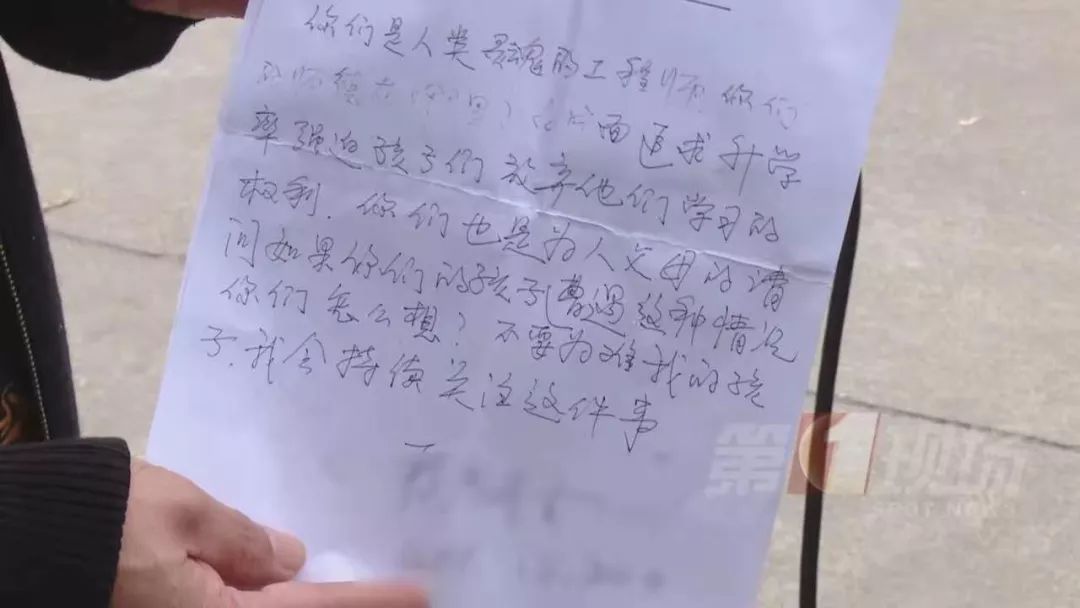 你们是人类灵魂的工程师.你们
的师德在(那里)
面追求升学
率强迫孩子们放弃他们学习的
权利.你们也是为人父母的请
问如果你们的孩子遭遇这种情况
你们怎么想?不要为难我的孩
子.我会持续关注这件事
第1现场
SPOT NEWS